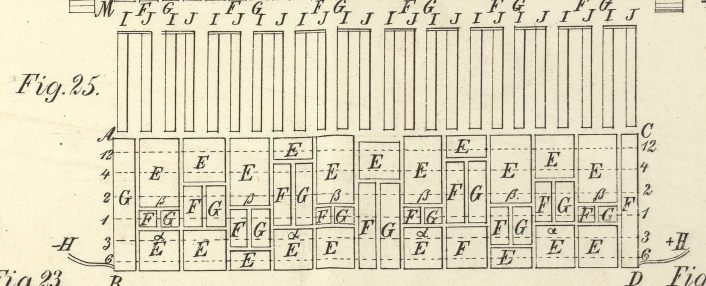 M I F J G I J I F J G I J I F J G I J I F J G I J I F J G I J I F J G I J
Fig. 25.
A C
12 E E E E E E E E E E E 12
4 4
G E F G E F G E F G E F G E F G E F
2 β F G β β F G β β F G β 2
1 F G F G F G F G F G F G F G 1
3 α E E F G α E E F G α E F F G α E E 3
-H 6 E E 6 +H
Fig 23 B D Fig